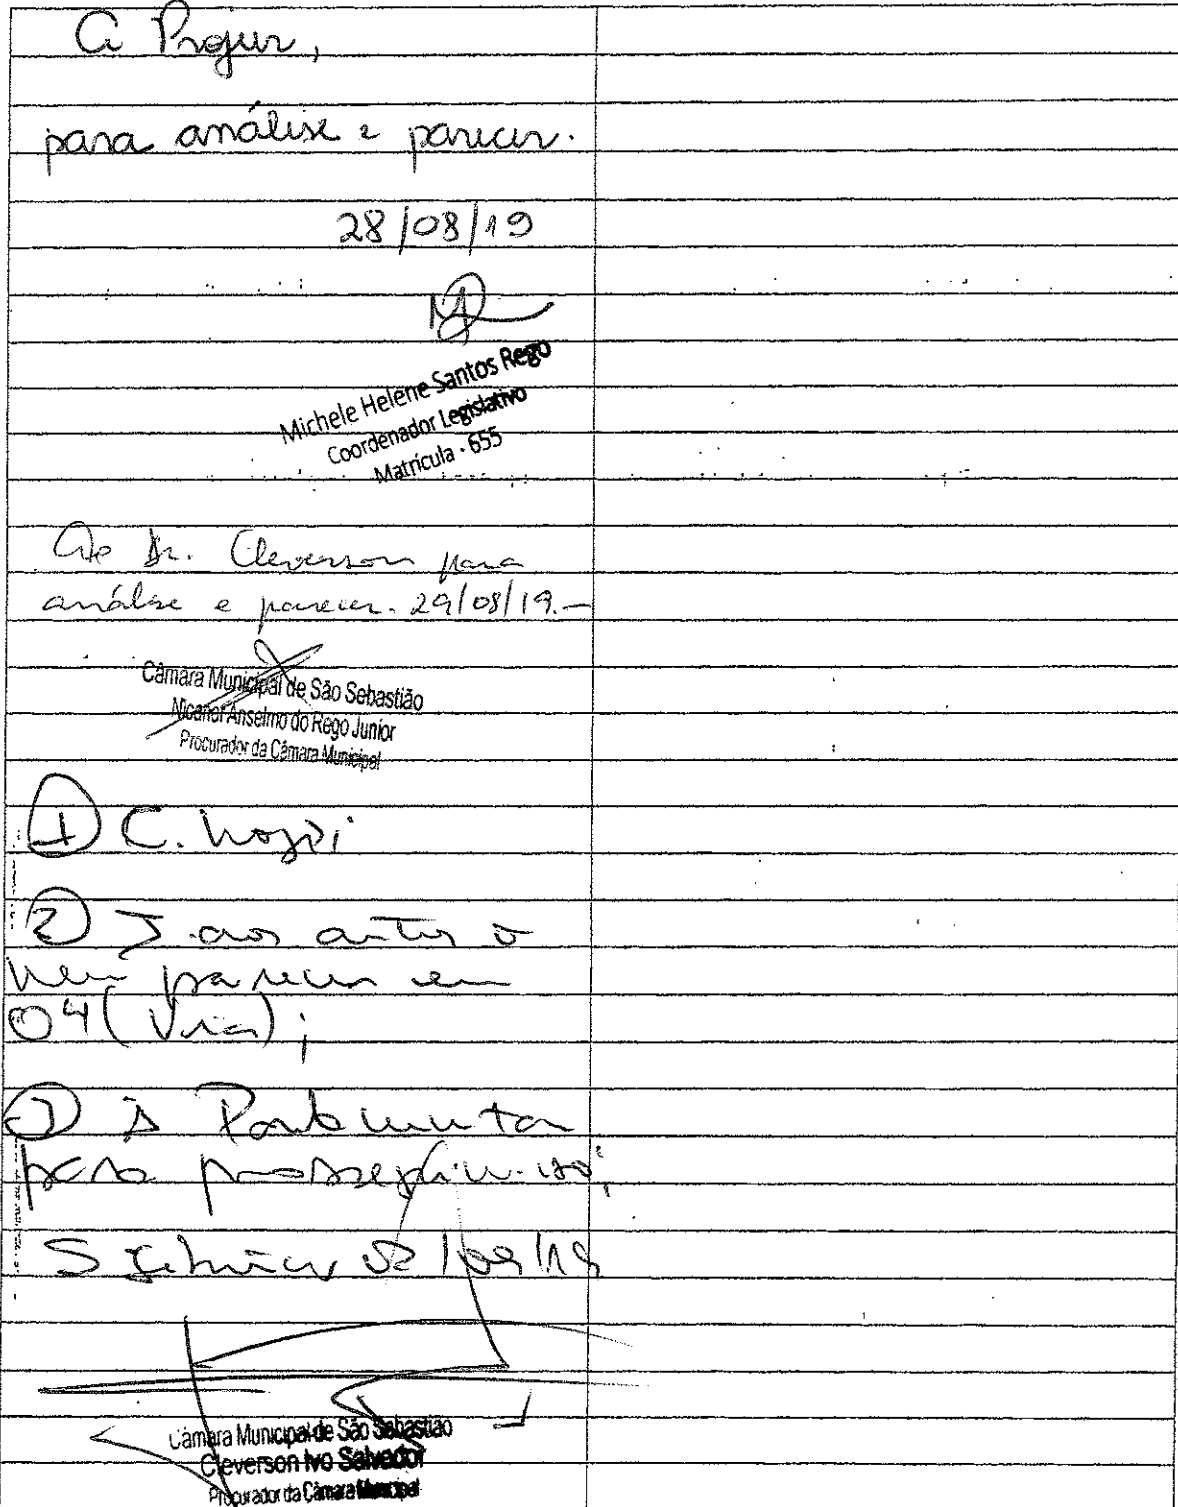 A Projur,
para análise e parecer.
28/08/19
Michele Helene Santos Rego
Coordenador Legislativo
Matrícula - 655
Ao Dr. Cleverson para
análise e parecer. 29/08/19.-
Câmara Municipal de São Sebastião
Nicanor Anselmo do Rego Junior
Procurador da Câmara Municipal
① C. hoje;
② J. aos autos o
meu parecer em
04 (
③ À
para prosseguimento;
S. Sebastião 02/09/19
Câmara Municipal de São Sebastião
Cleverson Ivo Salvador
Procurador da Câmara Municipal